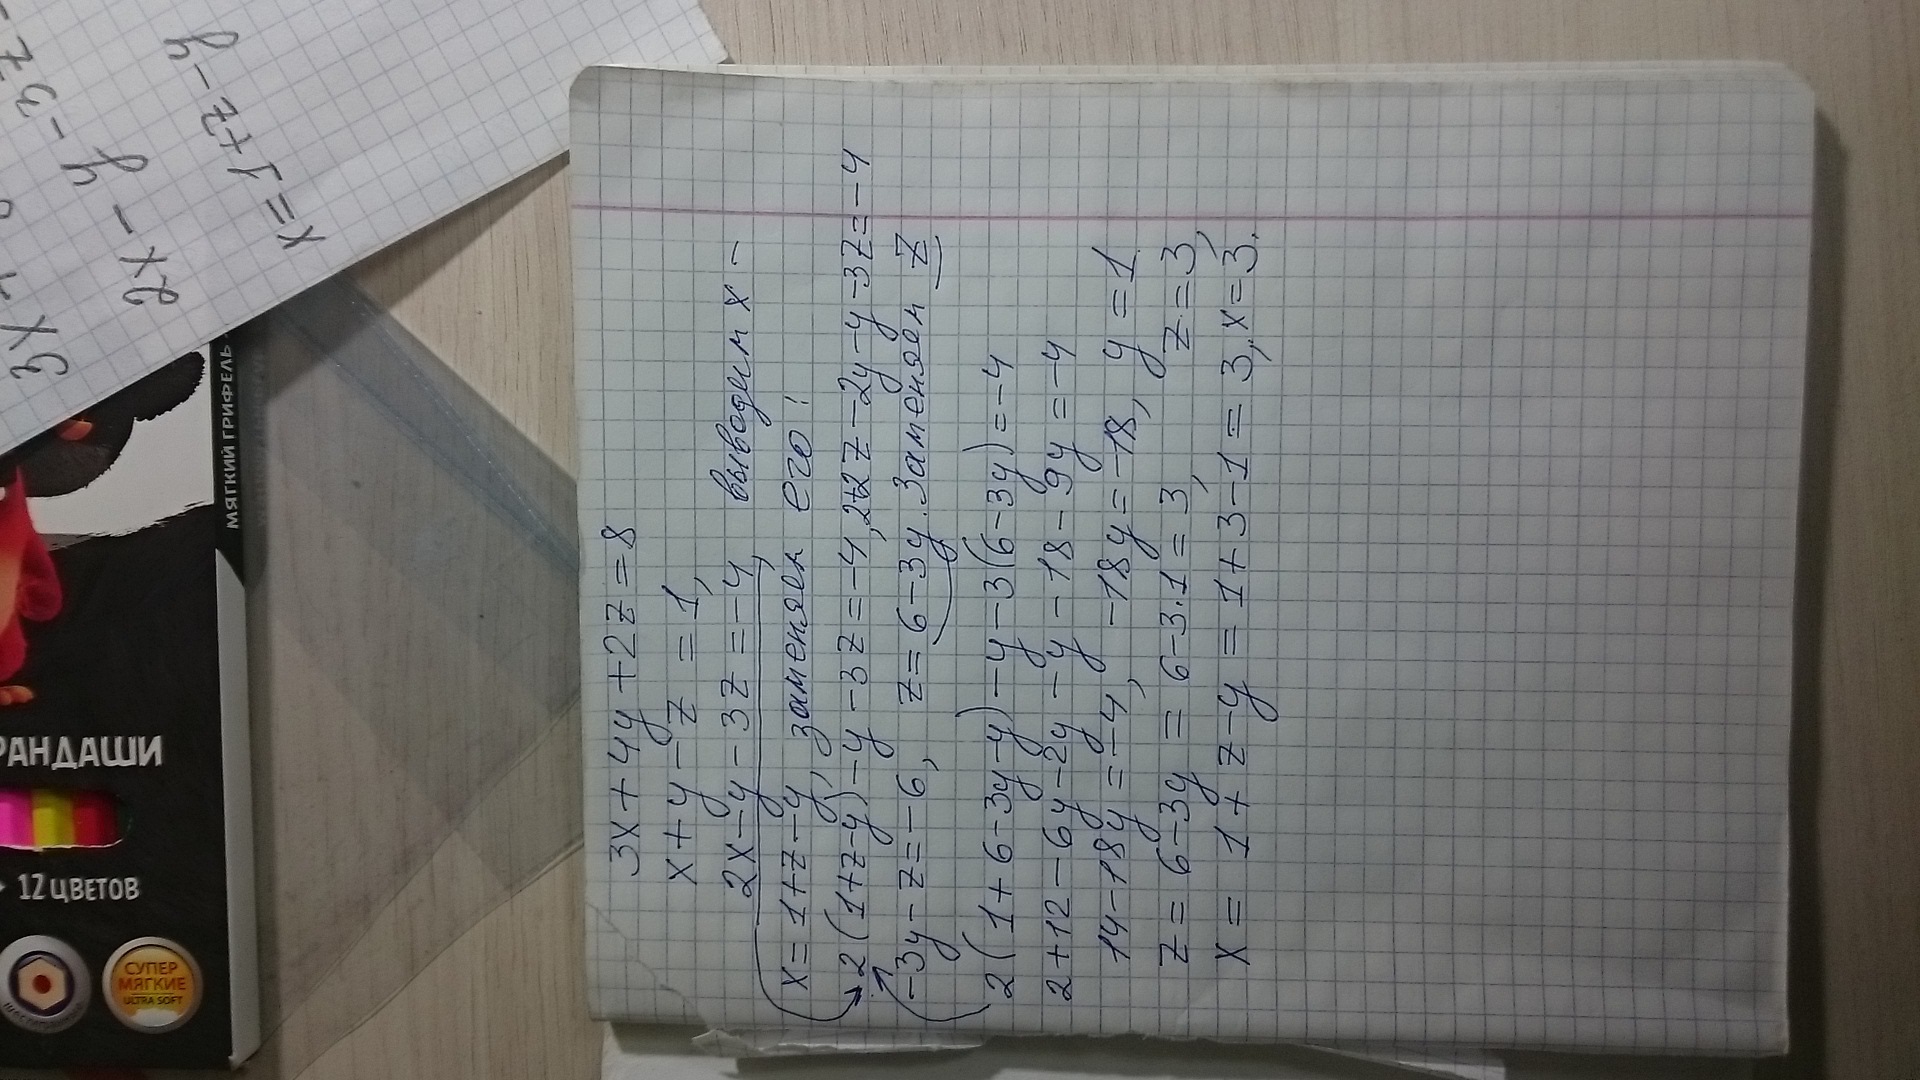 3x+4y+2z=8
x+y-z=1,
2x-y-3z=-4, выводим x -
x=1+z-y, заменяем его:
2(1+z-y)-y-3z=-4, 2+2z-2y-y-3z=-4
-3y-z=-6, z=6-3y. Заменяем z
2(1+6-3y-y)-y-3(6-3y)=-4
2+12-6y-2y-y-18-9y=-4
14-18y=-4, -18y=-18, y=1
z=6-3y=6-3·1=3, z=3,
x=1+z-y=1+3-1=3, x=3.
x=1+z-y
2x-y-3z
3x+
МЯГКИЙ ГРИФЕЛЬ
РАНДАШИ
12 ЦВЕТОВ
СУПЕР
МЯГКИЕ
ULTRA SOFT